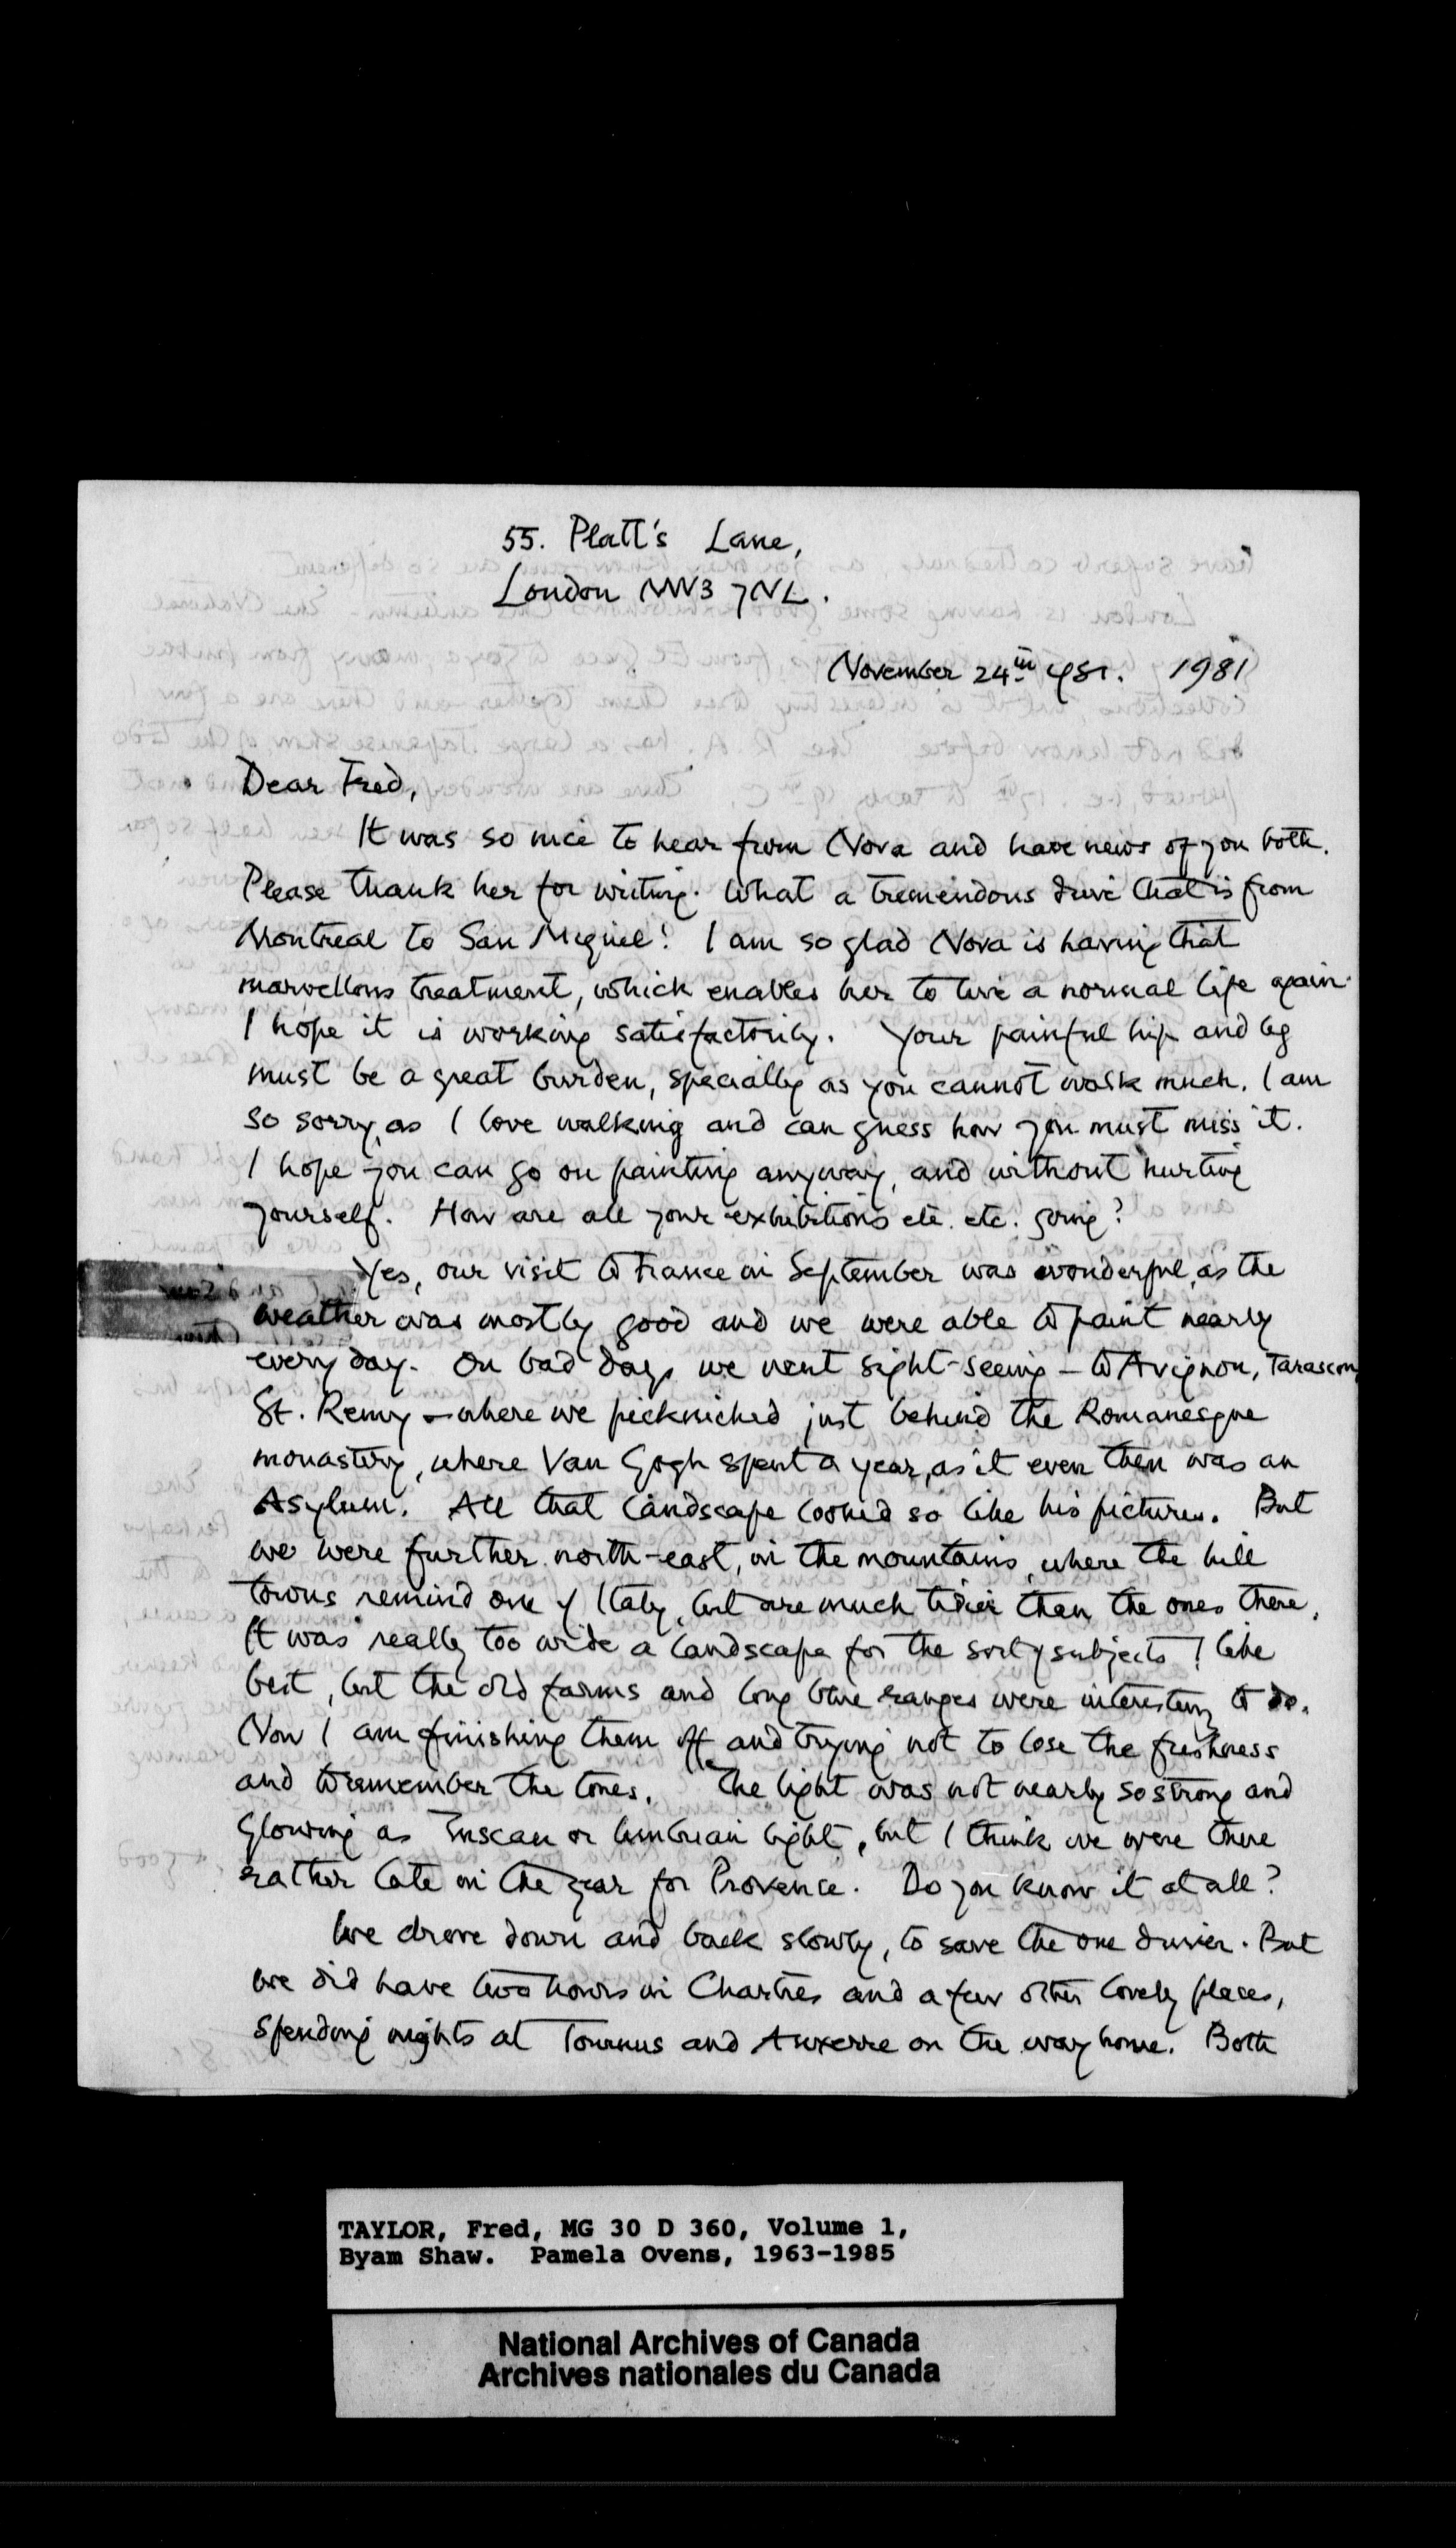 55. Platt's Lane,
London NW3 7NL.
November 24th 1981
Dear Fred,
It was so nice to hear from Nora and have news of you both.
Please thank her for writing. What a tremendous drive that is from
Montreal to San Miguel! I am so glad Nora is having that
marvellous treatment, which enables her to live a normal life again.
I hope it is working satisfactorily. Your painful hip and leg
must be a great burden, specially as you cannot walk much. I am
so sorry, as I love walking and can guess how you must miss it.
I hope you can go on painting anyway, and without hurting
yourself. How are all your exhibitions etc. etc. going?
Yes, our visit to France in September was wonderful, as the
weather was mostly good and we were able to paint nearly
every day. On bad days we went sight-seeing – to Avignon, Tarascon,
St. Remy – where we picknicked just behind the Romanesque
monastery, where Van Gogh spent a year, as it even then was an
Asylum. All that landscape looked so like his pictures. But
we were further north-east, in the mountains, where the hill
towns remind one of Italy, but are much tidier than the ones there.
It was really too wide a landscape for the sort of subjects I like
best, but the old farms and long blue ranges were interesting to do.
Now I am finishing them off and trying not to lose the freshness
and to remember the tones. The light was not nearly so strong and
glowing as Tuscan or Umbrian light, but I think we were there
rather late in the year for Provence. Do you know it at all?
We drove down and back slowly, to save the one driver. But
we did have two hours in Chartres and a few other lovely places,
spending nights at Tournus and Auxerre on the way home. Both
TAYLOR, Fred, MG 30 D 360, Volume 1,
Byam Shaw. Pamela Ovens, 1963-1985
National Archives of Canada
Archives nationales du Canada